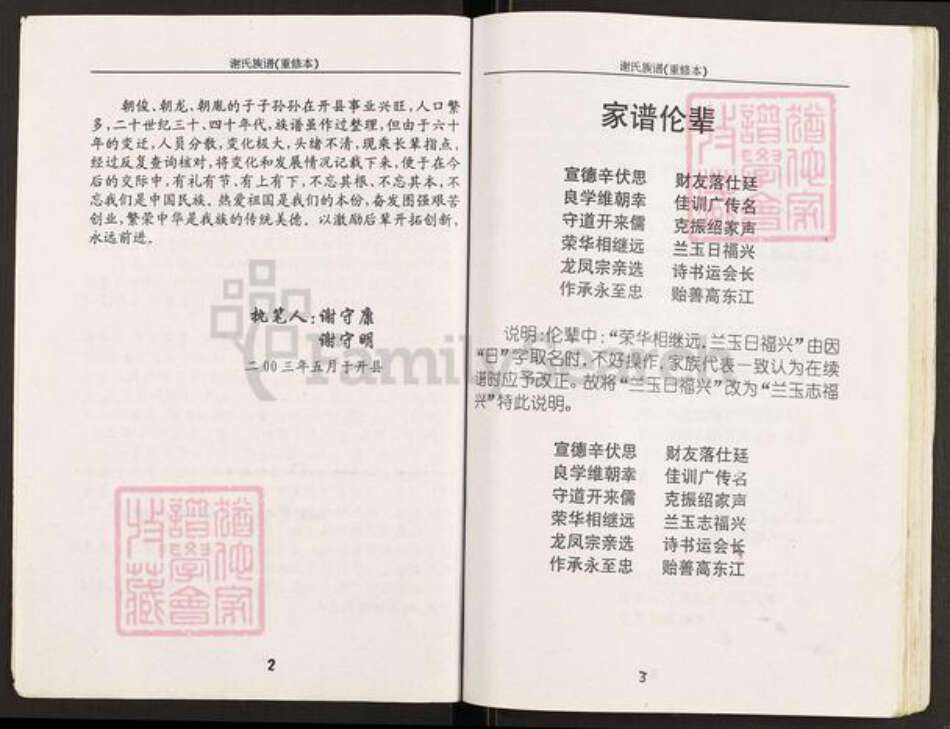 谢氏族谱(重修本)
朝俊、朝龙、朝胤的子子孙孙在开县事业兴旺,人口繁
多,二十世纪三十、四十年代,族谱虽作过整理,但由于六十
年的变迁,人员分散,变化极大,头绪不清,现乘长辈指点,
经过反复查询核对,将变化和发展情况记载下来,便于在今
后的交际中,有礼有节、有上有下,不忘其根、不忘其本,不
忘我们是中国民族。热爱祖国是我们的本份,奋发图强艰苦
创业,繁荣中华是我族的传统美德。以激励后辈开拓创新,
永远前进。
执笔人:谢守康
谢守明
二00三年五月于开县
猶他家
譜學會
收藏
2
谢氏族谱(重修本)
家谱伦辈
宣德辛伏思 财友落仕廷
良学维朝幸 佳训广传名
守道开来儒 克振绍家声
荣华相继远 兰玉日福兴
龙凤宗亲选 诗书运会长
作承永至忠 贻善高东江
说明:伦辈中:“荣华相继远,兰玉日福兴”由因
“日”字取名时,不好操作,家族代表一致认为在续
谱时应予改正。故将“兰玉日福兴”改为“兰玉志福
兴”特此说明。
宣德辛伏思 财友落仕廷
良学维朝幸 佳训广传名
守道开来儒 克振绍家声
荣华相继远 兰玉志福兴
龙凤宗亲选 诗书运会长
作承永至忠 贻善高东江
猶他家
譜學會
收藏
3
FamilySearch